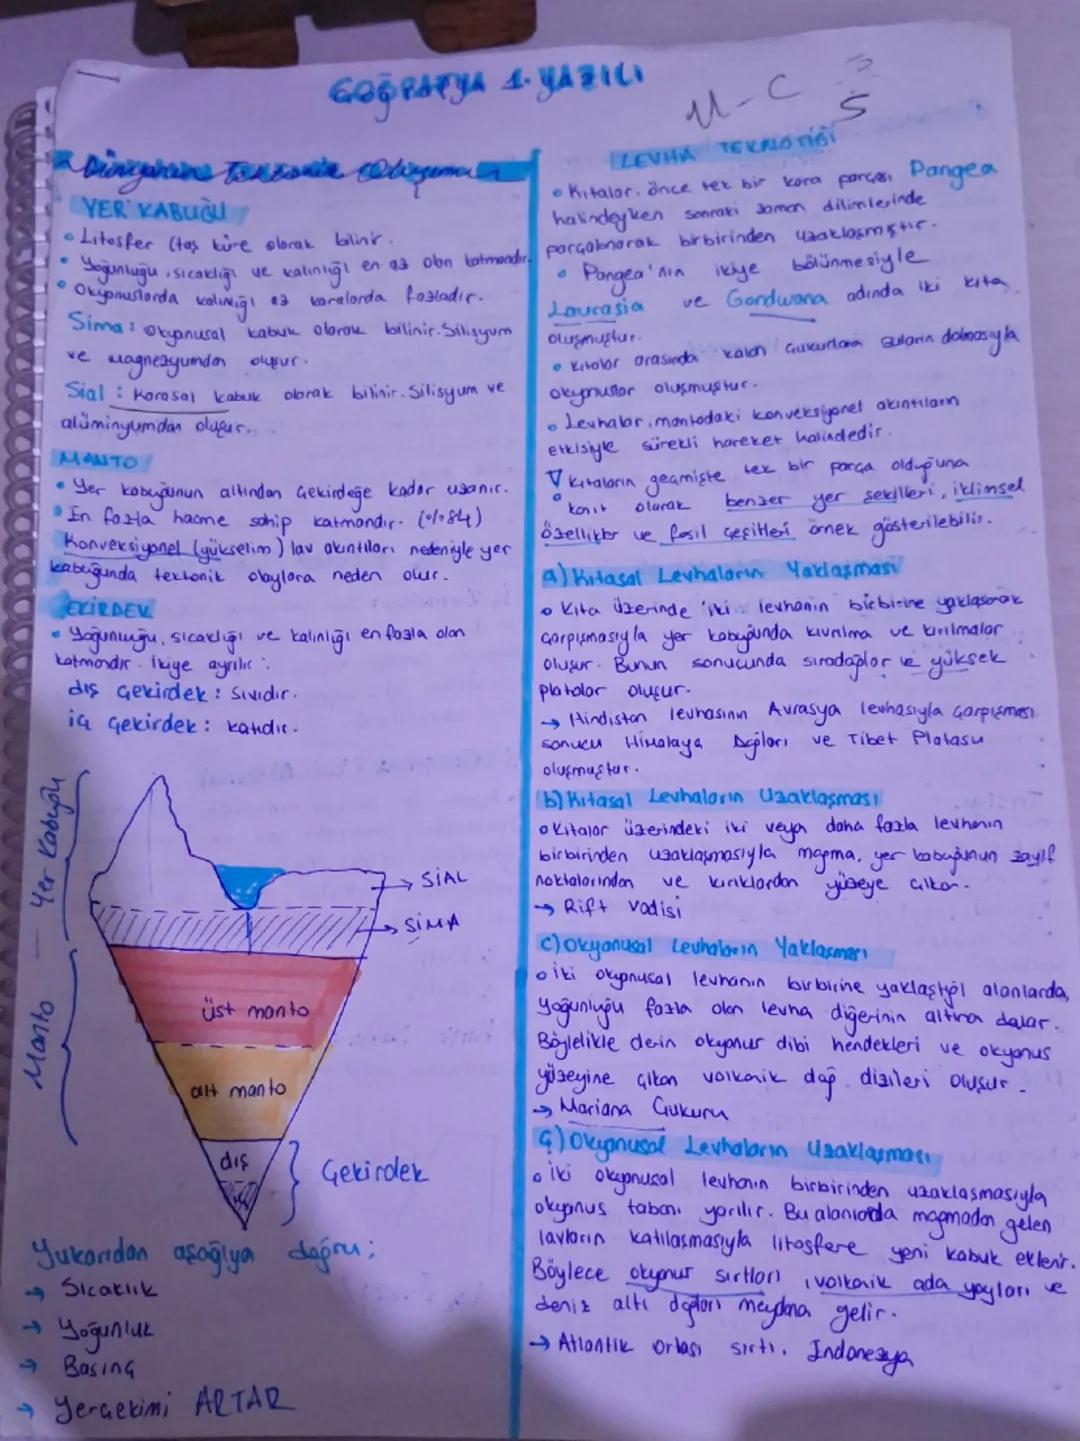 COĞRAFYA 1. YAZILI
M-C
5
Dünyanın Tektonik Oluşumu
YER KABUĞU
• Litosfer (taş küre olarak bilinir.
• Yoğunluğu, sıcaklığı ve kalınlığı en az olan katmandır.
• Okyanuslarda kalınlığı az karalarda fazladır.
Sima: Okyanusal kabuk olarak bilinir. Silisyum
ve magnezyumdan oluşur.
Sial: Karasal kabuk olarak bilinir. Silisyum ve
alüminyumdan oluşur.
MANTO
• Yer kabuğunun altından çekirdeğe kadar uzanır.
• En fazla hacme sahip katmandır. (%84)
Konveksiyonel (yükselim) lav akıntıları nedeniyle yer
kabuğunda tektonik olaylara neden olur.
ÇEKİRDEK
• Yoğunluğu, sıcaklığı ve kalınlığı en fazla olan
katmandır. İkiye ayrılır:
dış çekirdek: Sıvıdır.
iç çekirdek: katıdır.
Yer Kabuğu
Manto
→ SİAL
→ SİMA
üst manto
alt manto
dış
Çekirdek
Yukarıdan aşağıya doğru;
→ Sıcaklık
→ Yoğunluk
→ Basınç
→ Yerçekimi ARTAR
LEVHA TEKNOTİĞİ
• Kıtalar, önce tek bir kara parçası Pangea
halindeyken sonraki zaman dilimlerinde
parçalanarak birbirinden uzaklaşmıştır.
• Pangea'nın ikiye bölünmesiyle
Laurasia ve Gondwana adında iki kıta
oluşmuştur.
• Kıtalar arasında kalan çukurlara suların dolmasıyla
okyanuslar oluşmuştur.
• Levhalar, mantodaki konveksiyonel akıntıların
etkisiyle sürekli hareket halindedir.
∇ Kıtaların geçmişte tek bir parça olduğuna
kanıt olarak benzer yer şekilleri, iklimsel
özellikler ve fosil çeşitleri örnek gösterilebilir.
a) Kıtasal Levhaların Yaklaşması
• Kıta üzerinde iki levhanın birbirine yaklaşarak
çarpışmasıyla yer kabuğunda kıvrılma ve kırılmalar
oluşur. Bunun sonucunda sıradağlar ve yüksek
platolar oluşur.
→ Hindistan levhasının Avrasya levhasıyla çarpışması
sonucu Himalaya Dağları ve Tibet Platosu
oluşmuştur.
b) Kıtasal Levhaların Uzaklaşması
• Kıtalar üzerindeki iki veya daha fazla levhanın
birbirinden uzaklaşmasıyla magma, yer kabuğunun zayıf
noktalarından ve kırıklardan yüzeye çıkar.
→ Rift vadisi
c) Okyanusal Levhaların Yaklaşması
• İki okyanusal levhanın birbirine yaklaştığı alanlarda,
yoğunluğu fazla olan levha diğerinin altına dalar.
Böylelikle derin okyanus dibi hendekleri ve okyanus
yüzeyine çıkan volkanik dağ dizileri oluşur.
→ Mariana Çukuru
ç) Okyanusal Levhaların Uzaklaşması
• İki okyanusal levhanın birbirinden uzaklaşmasıyla
okyanus tabanı yarılır. Bu alanlarda magmadan gelen
lavların katılaşmasıyla litosfere yeni kabuk eklenir.
Böylece okyanus sırtları, volkanik ada yayları ve
deniz altı dağları meydana gelir.
→ Atlantik ortası sırtı, Indonezya